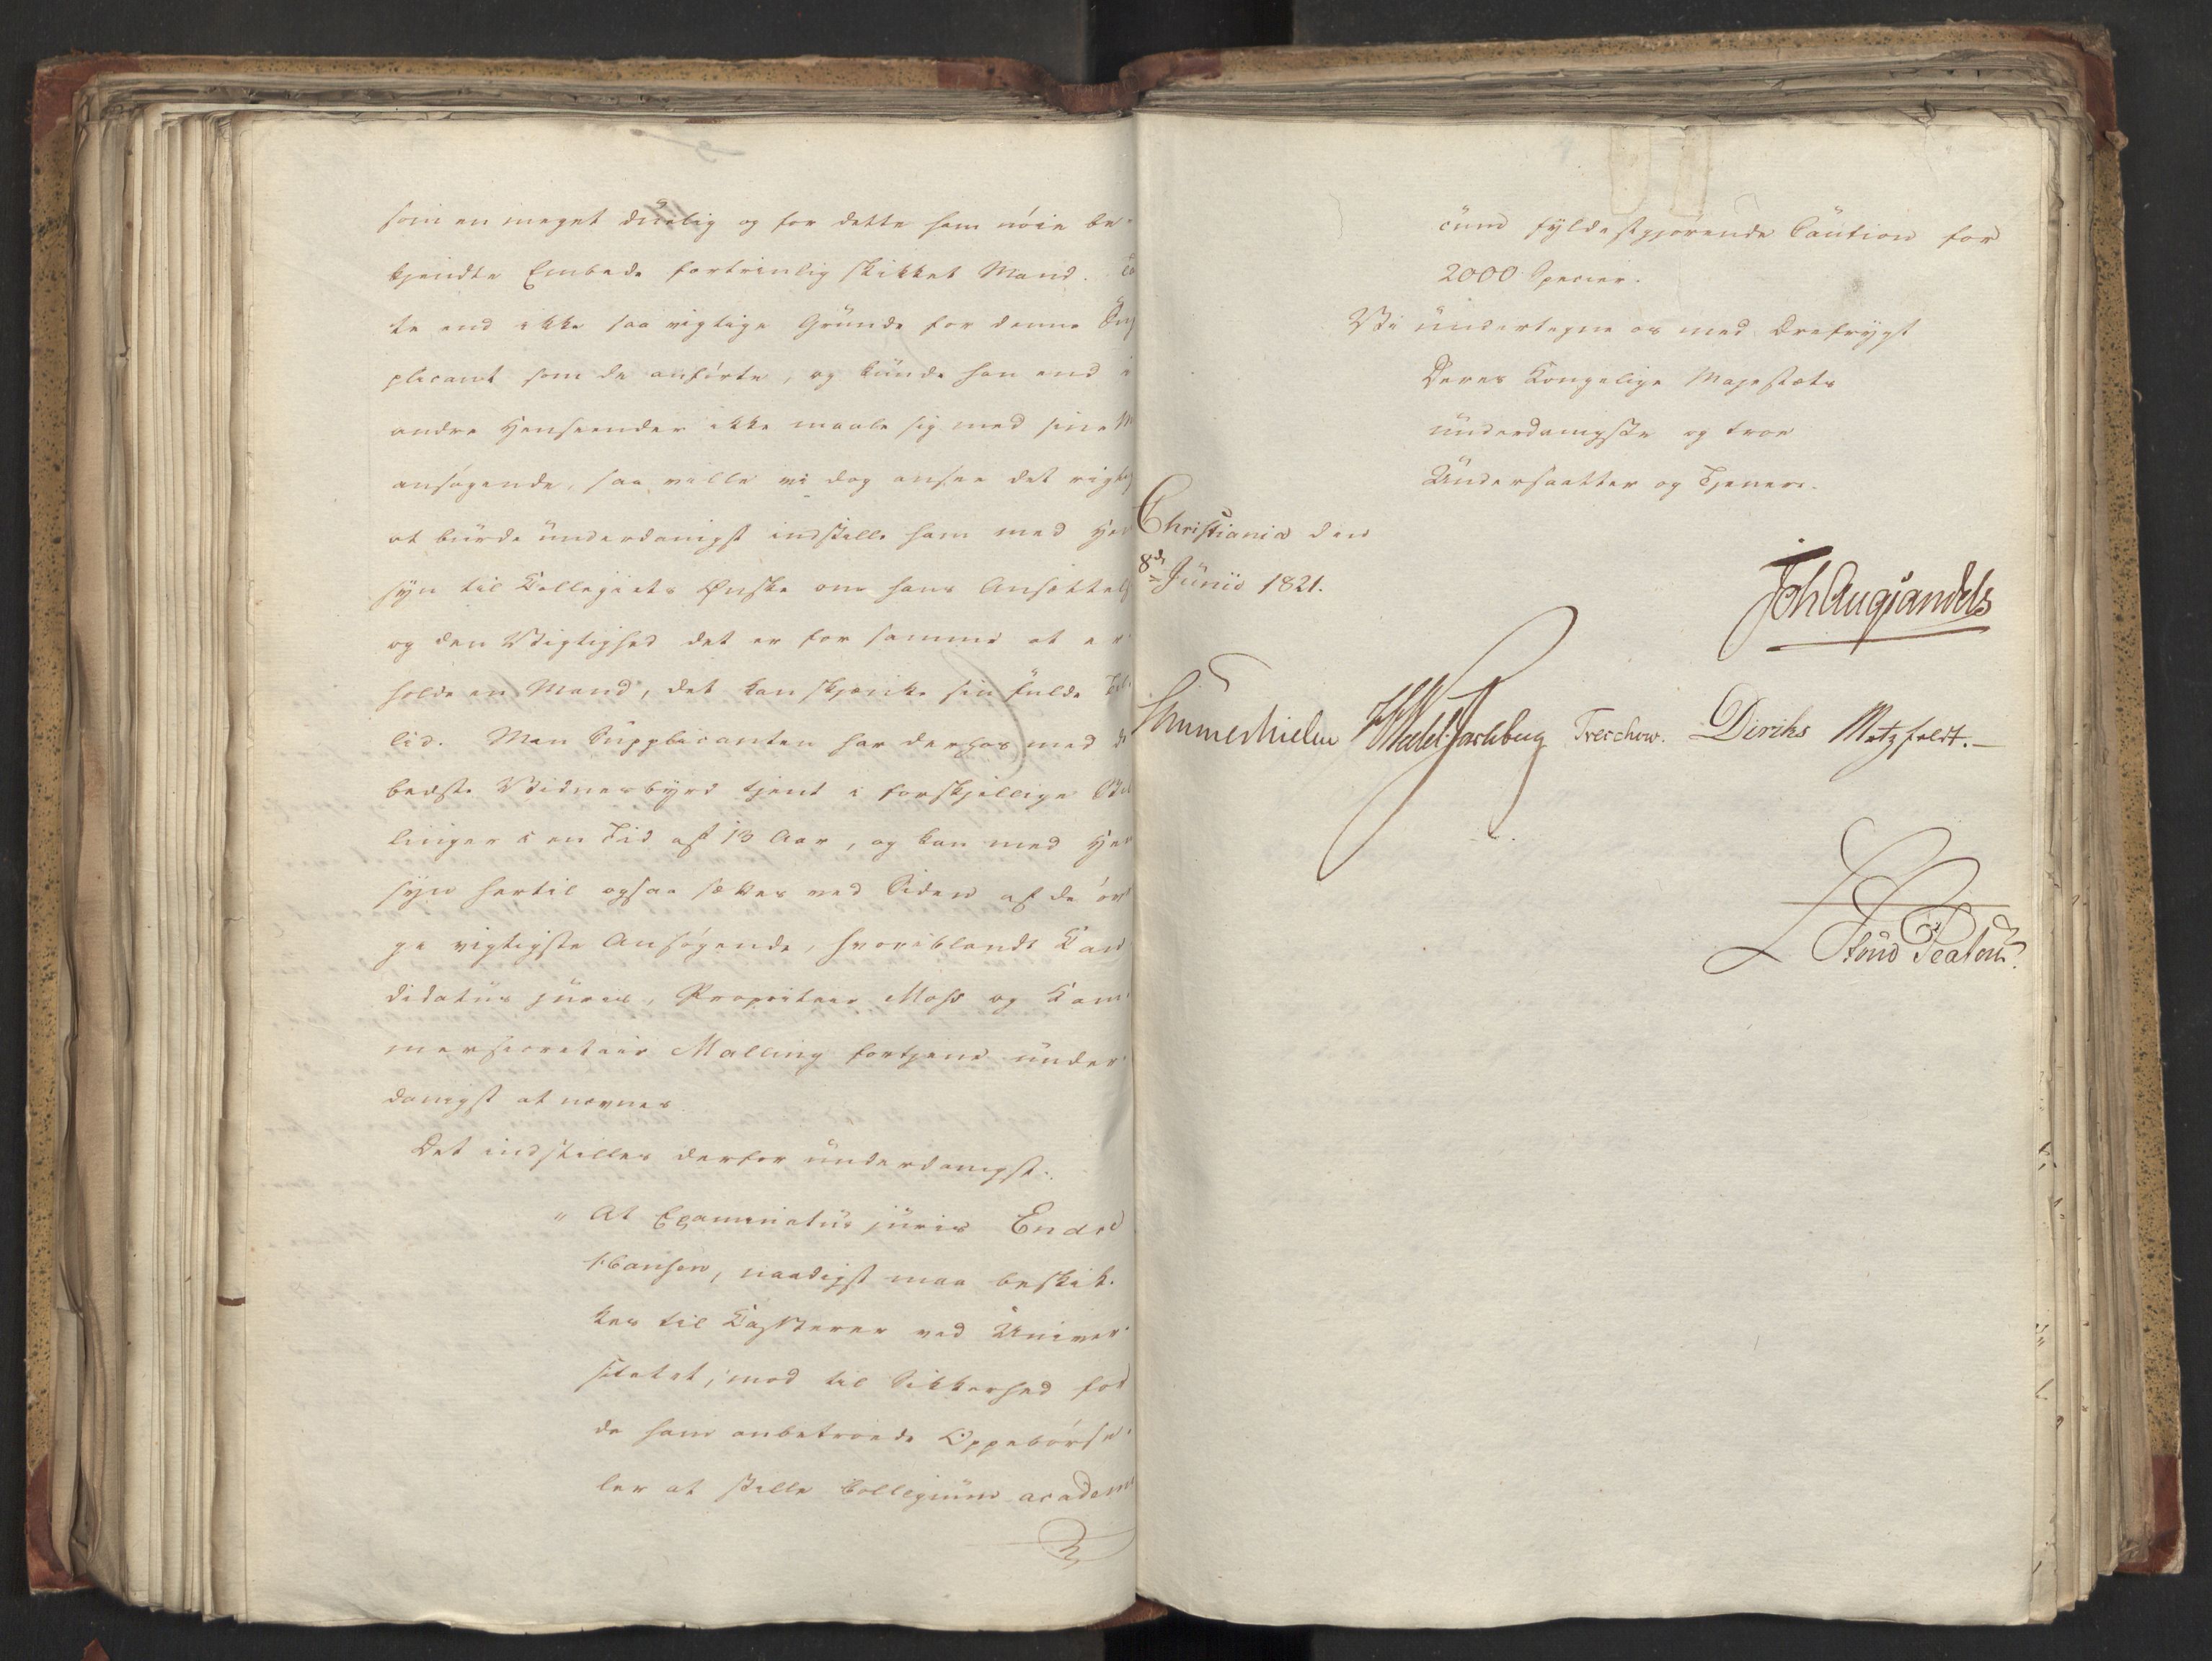 som en meget duelig og for dette ham nóie be-
kjendte Embede fortrinlig skikket Mand.
te end ikke saa vigtige Grunde for denne Sup
plicant som de anførte, og kunde han end i
andre Henseender ikke maale sig med sine M
ansøgende, saa ville vi dog ansee det rigtig
at burde underdanigst indstille ham med Hen
syn til Collegiets Ønske om hans Ansættelse
og den Vigtighed det er for samme at er-
holde en Mand, det kan skjænke sin fulde Til
lid. Men Supplicanten har derhos med de
bedste Vidnesbyrd tjent i forskjellige Stil
linger i en Tid af 13 Aar, og kan med Hen
syn hertil ogsaa sættes ved Siden af de øvri
ge vigtigste Ansøgende, hvoriblandt Can
didatus juris, Proprietair Moss og Kam-
mersecretair Malling fortjene under-
danigst at nævnes.
Det indstilles derfor underdanigst:
" At Examinatus juris Endre
Hansen, naadigst maa beskik-
kes til Casserer ved Univer-
sitetet, mod til Sikkerhed for
de ham anbetroede Oppebørse-
ler at stille Collegium academi
cum fyldestgjørende Caution for
2000 Specier.
Vi undertegne os med Ærefrygt
Deres Kongelige Majestæts
underdanigste og troe
Undersaatter og Tjenere.
Christiania den
8de Junii 1821.
Joh Aug Sandels
Sommerhielm Wedel Jarlsberg Treschow. Diriks Motzfeldt.